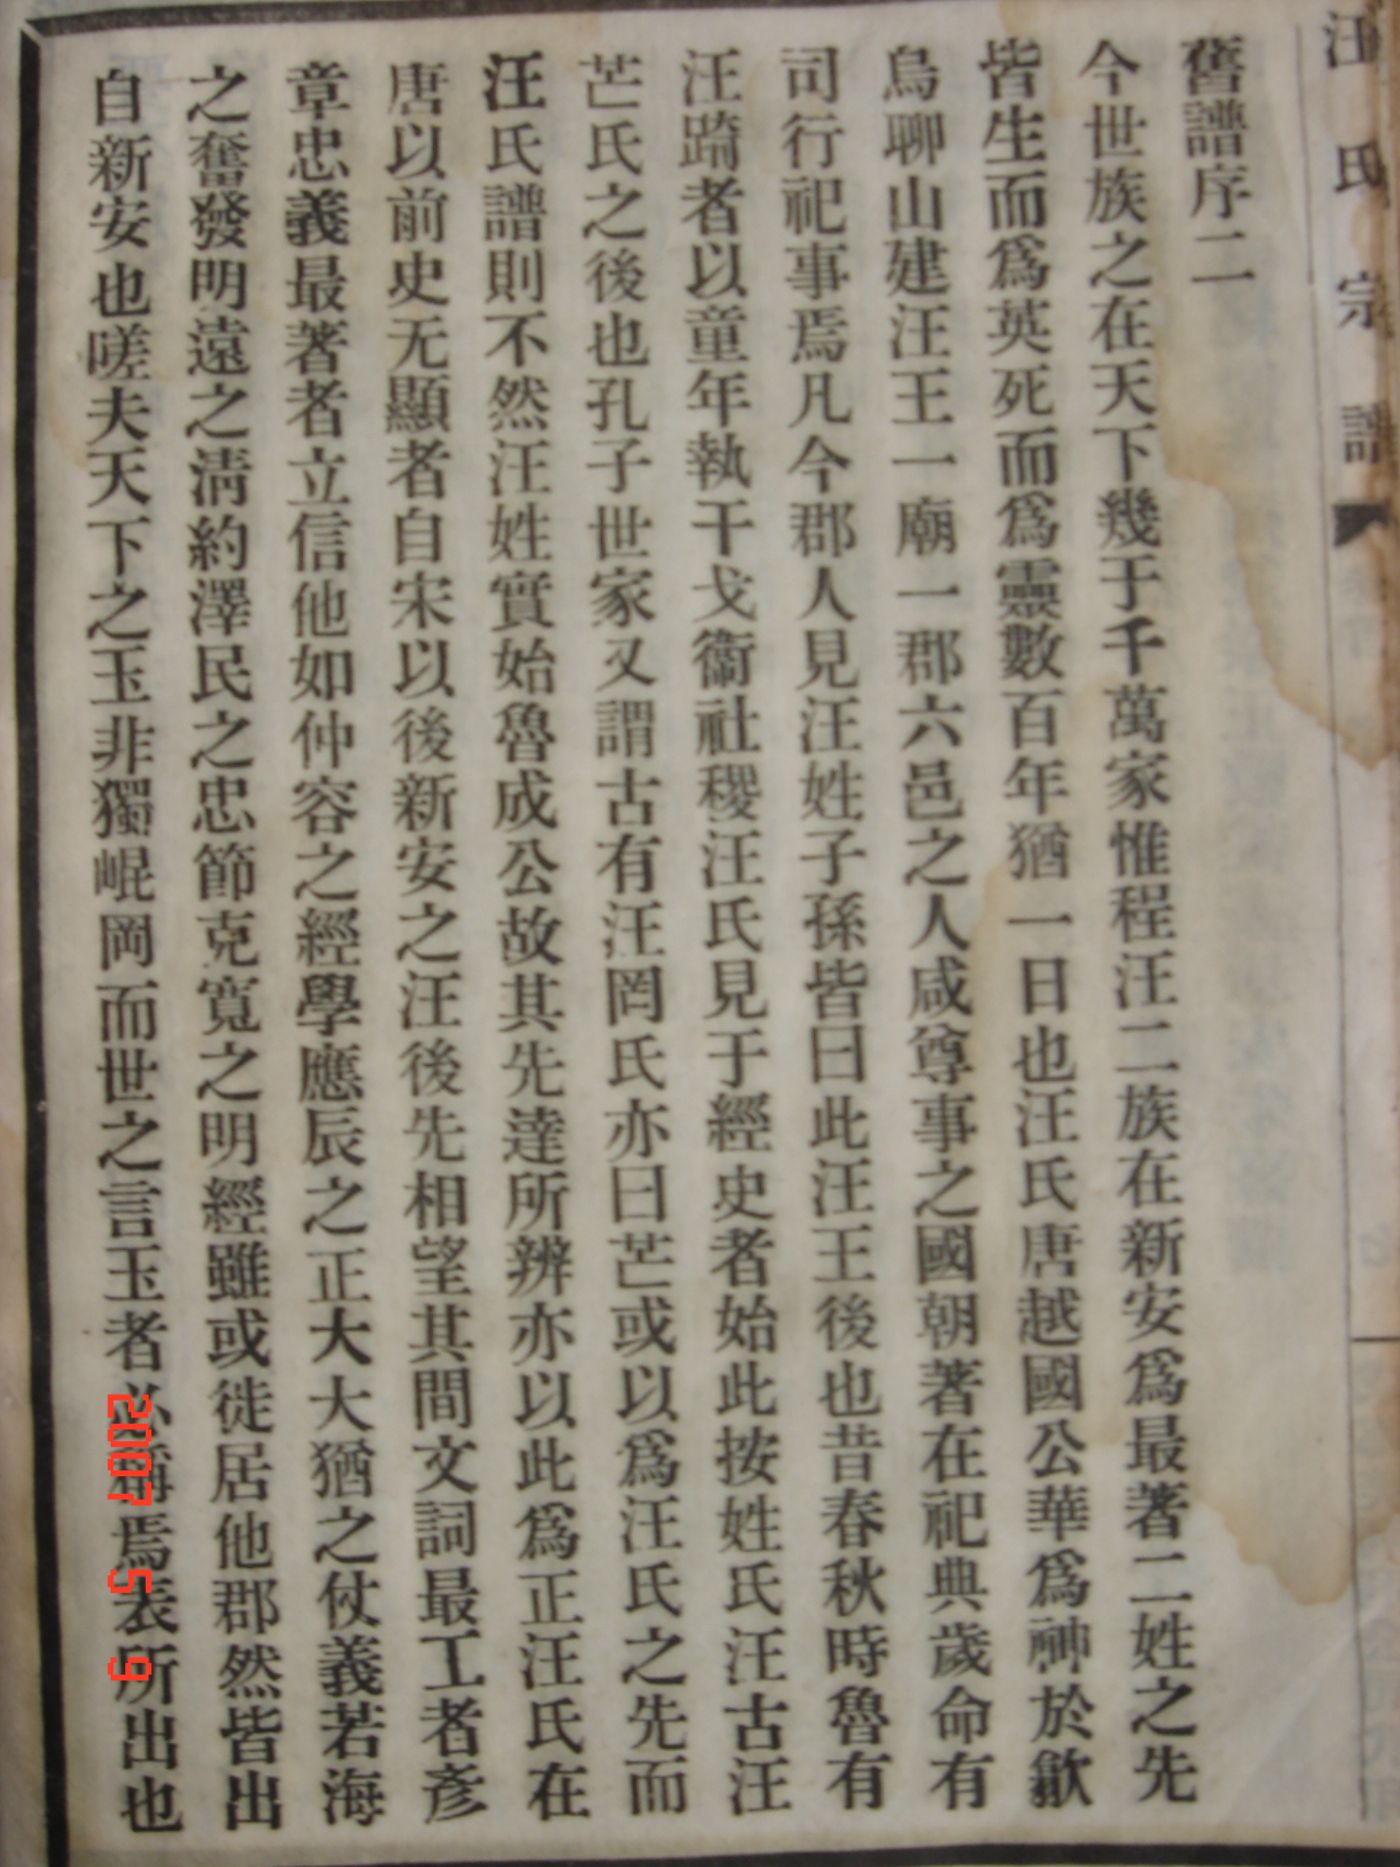 汪氏宗譜
舊譜序二
今世族之在天下幾于千萬家惟程汪二族在新安爲最著二姓之先
皆生而爲英死而爲靈數百年猶一日也汪氏唐越國公華爲神於歙
烏聊山建汪王一廟一郡六邑之人咸尊事之國朝著在祀典歲命有
司行祀事焉凡今郡人見汪姓子孫皆曰此汪王後也昔春秋時魯有
汪踦者以童年執干戈衞社稷汪氏見于經史者始此按姓氏汪古汪
芒氏之後也孔子世家又謂古有汪罔氏亦曰芒或以爲汪氏之先而
汪氏譜則不然汪姓實始魯成公故其先達所辨亦以此爲正汪氏在
唐以前史无顯者自宋以後新安之汪後先相望其間文詞最工者彦
章忠義最著者立信他如仲容之經學應辰之正大大猶之仗義若海
之奮發明遠之淸約澤民之忠節克寬之明經雖或徙居他郡然皆出
自新安也嗟夫天下之玉非獨崐岡而世之言玉者必稱焉表所出也
2007 5 9